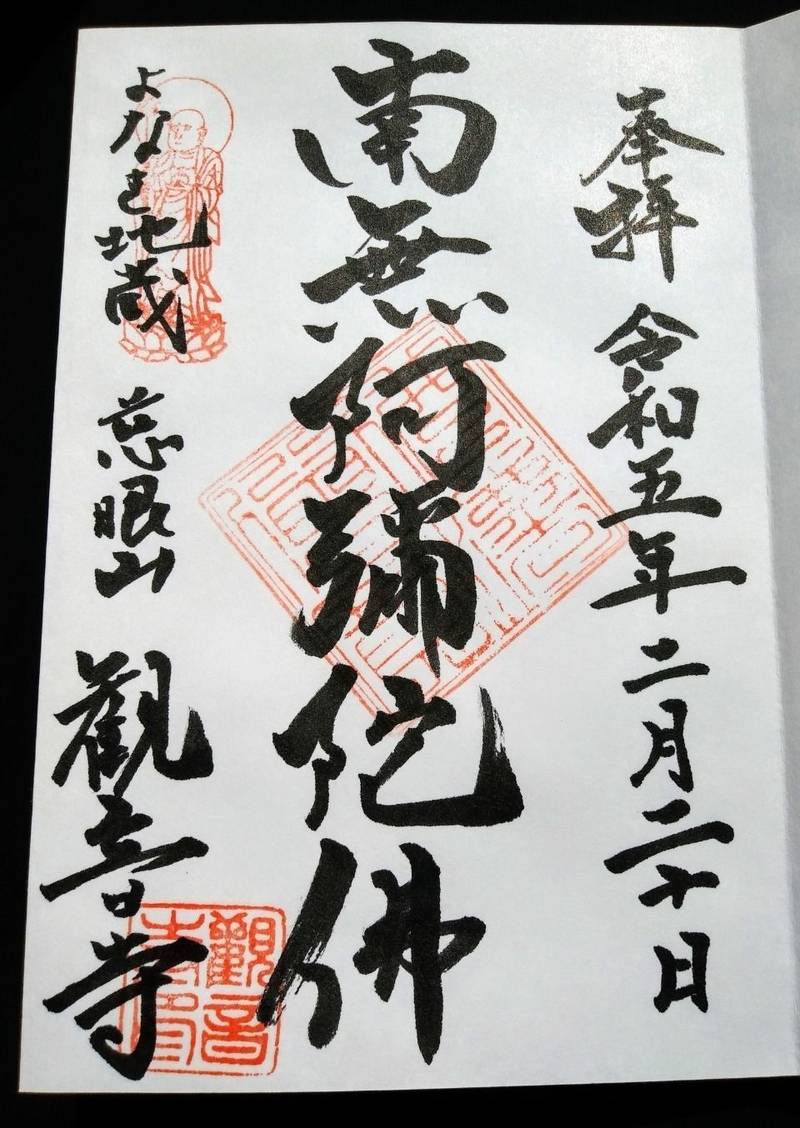 奉拝 令和五年二月二十日
南無阿彌陀佛
よなき地蔵 慈眼山 観音寺
觀音
寺印